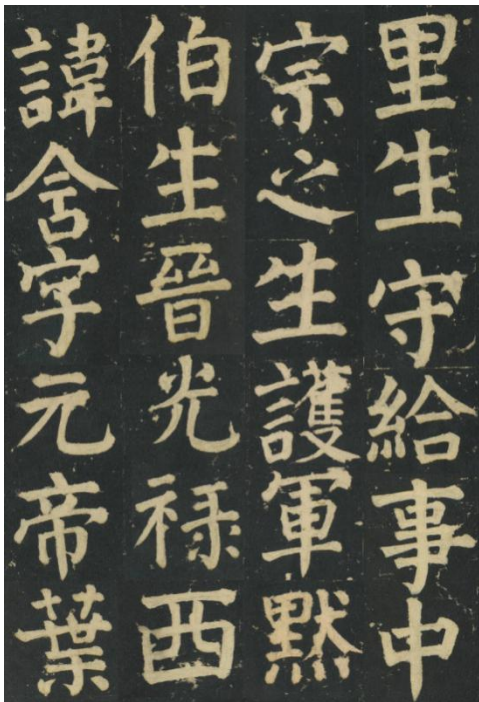 里生守給事中
宗之生護軍黙
伯生晉光禄西
諱含字元帝葉